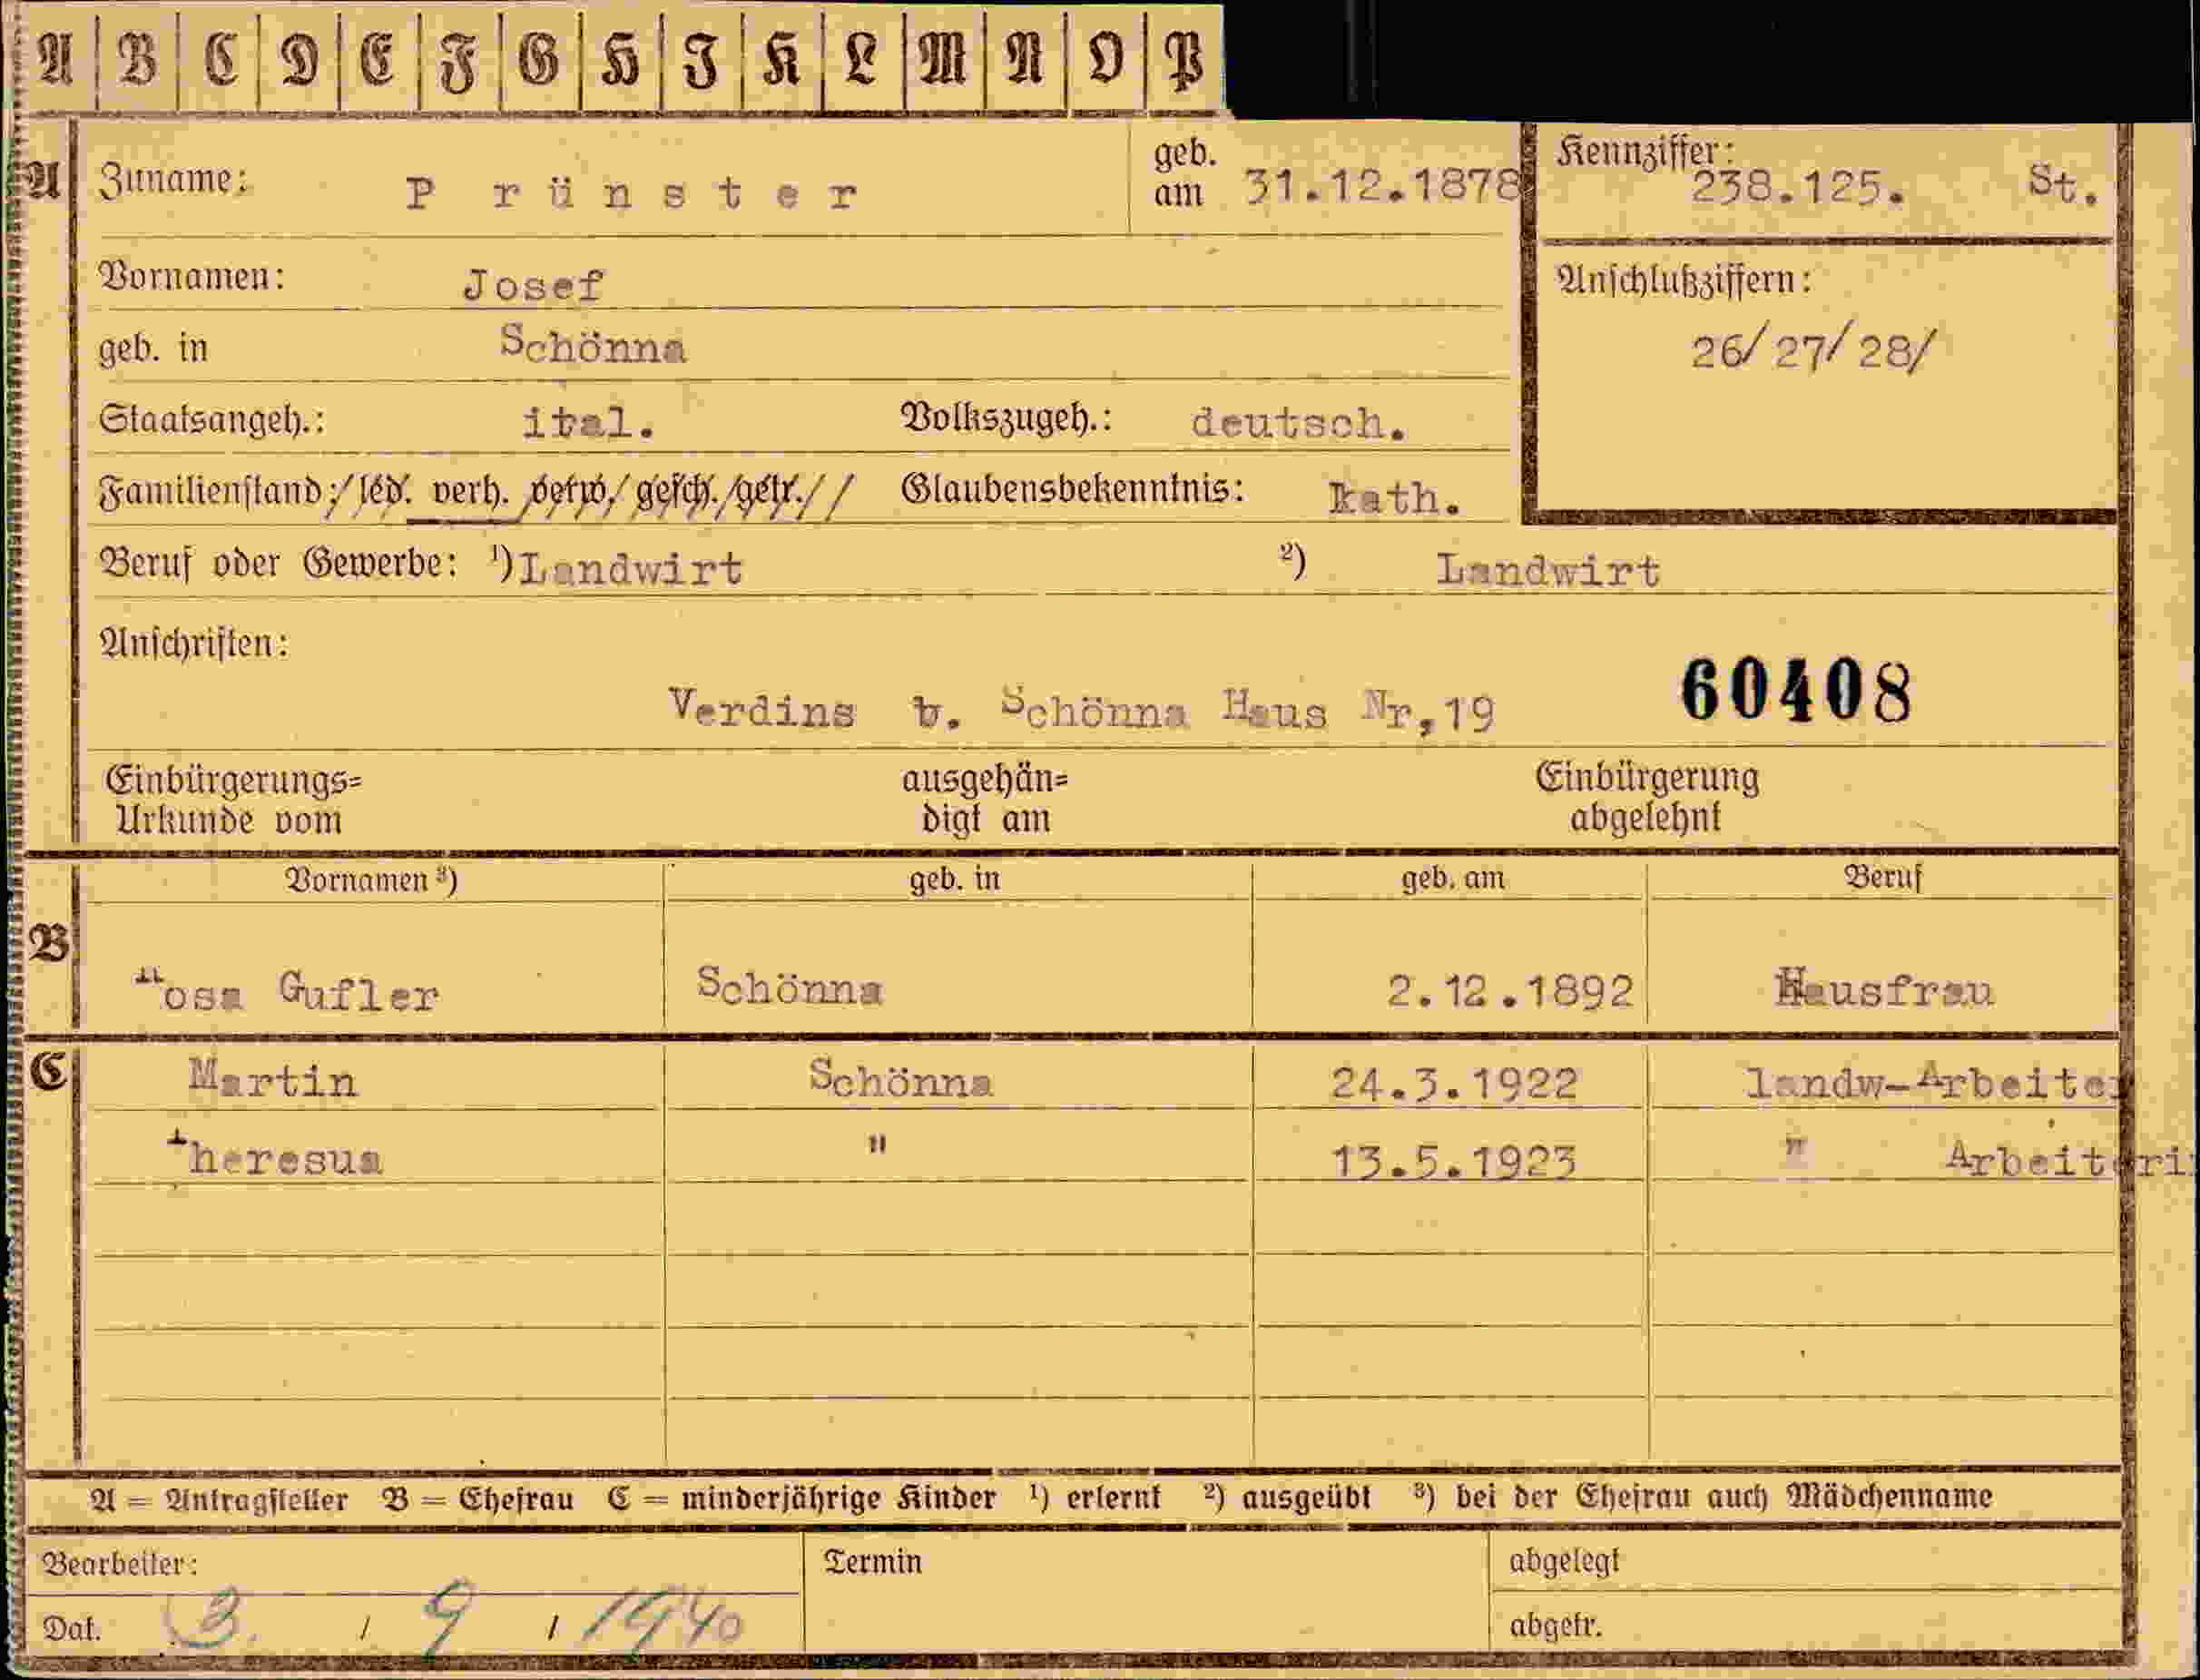 A B C D E F G H I K L M N O P
A Zuname: Prünster geb. am 31.12.1878 Kennziffer: 238.125. St.
Vornamen: Josef Anschlußziffern:
geb. in Schönna 26/27/28/
Staatsangeh.: ital. Volkszugeh.: deutsch.
Familienstand: led. verh. verw. gesch. getr. Glaubensbekenntnis: kath.
Beruf oder Gewerbe: ¹) Landwirt ²) Landwirt
Anschriften:
Verdins b. Schönna Haus Nr,19 60408
Einbürgerungs= ausgehän= Einbürgerung
Urkunde vom digt am abgelehnt
Vornamen ³) geb. in geb. am Beruf
B
Rosa Gufler Schönna 2.12.1892 Hausfrau
C Martin Schönna 24.3.1922 landw-Arbeiter
Theresua " 13.5.1923 " Arbeiteri
A = Antragsteller B = Ehefrau C = minderjährige Kinder ¹) erlernt ²) ausgeübt ³) bei der Ehefrau auch Mädchenname
Bearbeiter: Termin abgelegt
Dat. 3. / 9 / 1940 abgetr.